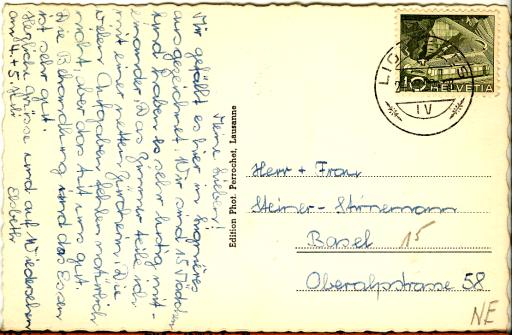 Meine Lieben!
Mir gefällt es hier in Lignières
ausgezeichnet. Wir sind 15 Mädchen
und haben es sehr lustig mit-
einander. Das Zimmer teile ich
mit einer netten Zürcherin. Die
vielen Aufgaben fehlen natürlich
nicht, aber das tut uns gut.
Die Behandlung und das Essen
ist sehr gut.
Herzliche Grüsse und auf Wiedersehen
am 4. + 5. Juli
Elsbeth
Edition Phot. Perrochet, Lausanne
HELVETIA
IV
Herr + Frau
Steiner-Stünemann
Basel 15
Oberalpstrasse 58
NE